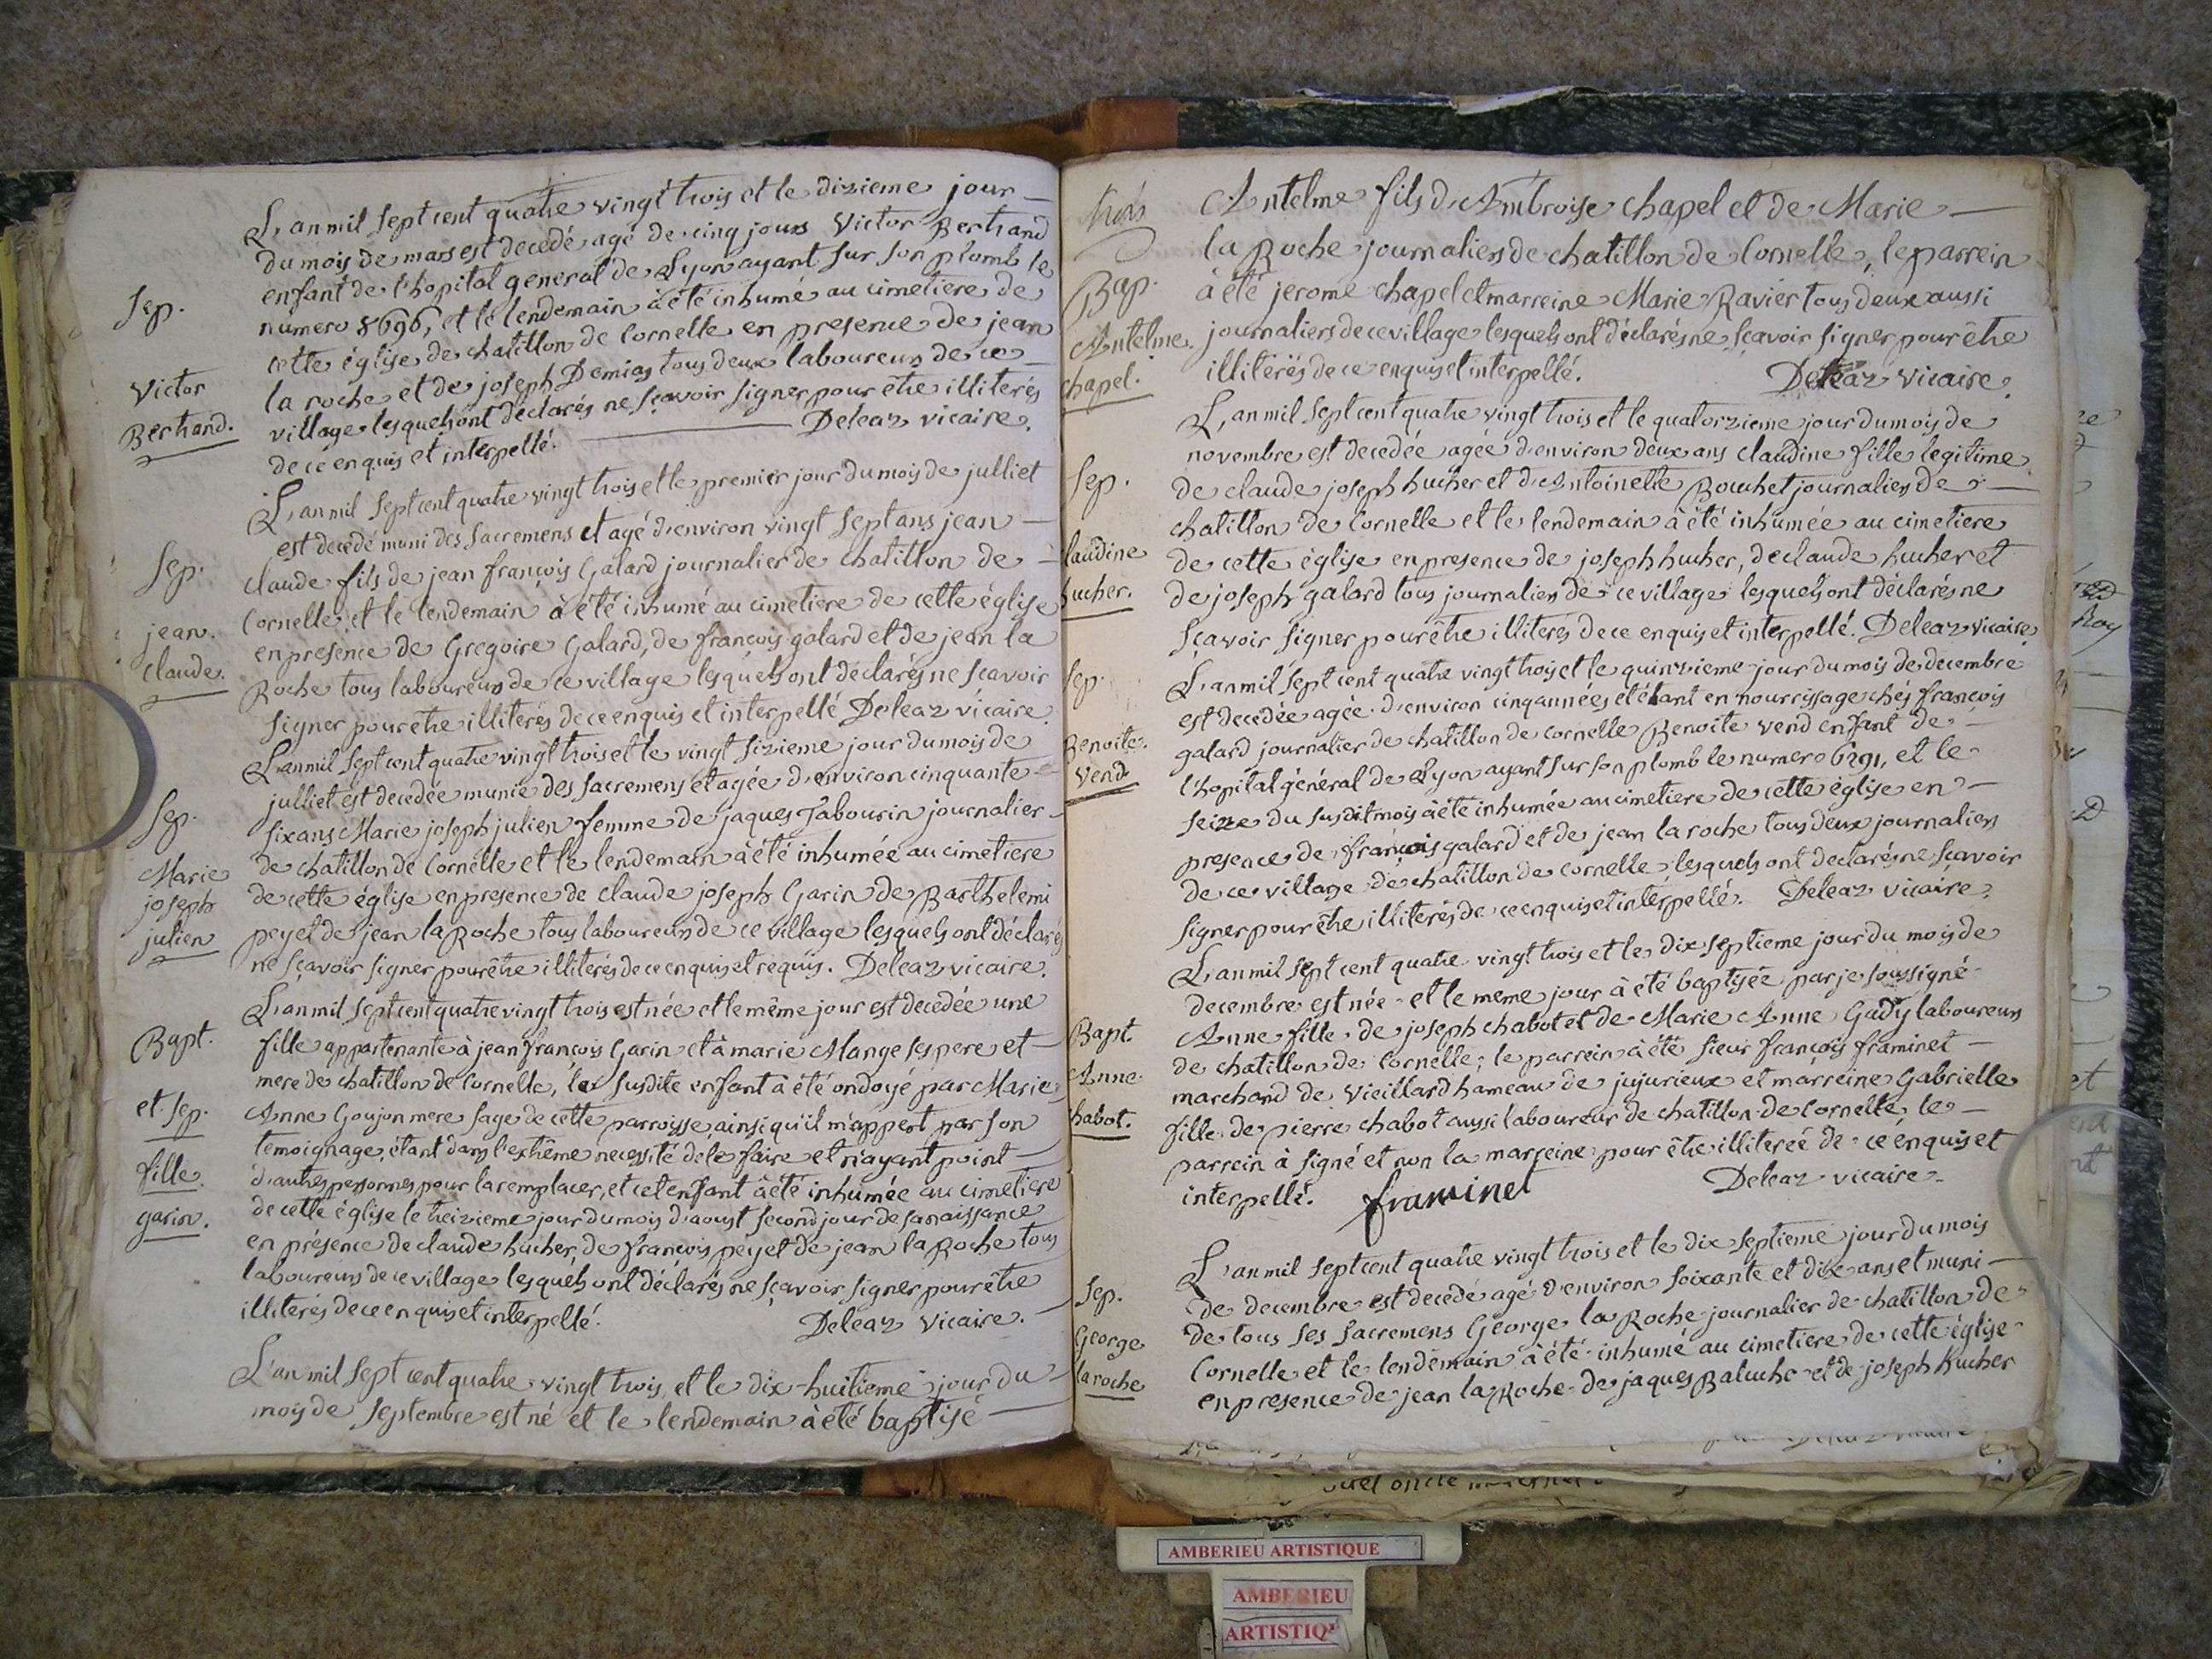 L'an mil sept cent quatre vingt trois et le dizieme jour
du mois de mars est decedé agé de cinq jours Victor Bertrand
enfant de l'hopital general de Lyon ayant sur son plomb le
numero 8696, et le lendemain à été inhumé au cimetiere de
cette église de chatillon de Cornelle en presence de jean
la roche et de joseph Demias tous deux laboureurs de ce
village lesquels ont déclarés ne sçavoir signer pour être illiterés
de ce enquis et interpellé. Deleaz vicaire.
Sep.
Victor
Bertrand.
L'an mil sept cent quatre vingt trois et le premier jour du mois de julliet
est decedé muni des sacremens et agé d'environ vingt sept ans jean
claude fils de jean françois Galard journalier de chatillon de
Cornelle, et le lendemain à été inhumé au cimetiere de cette église
en presence de Gregoire Galard, de françois galard et de jean la
Roche tous laboureurs de ce village lesquels ont déclarés ne scavoir
signer pour être illiterés de ce enquis et interpellé Deleaz vicaire.
Sep.
jean.
claude.
L'an mil sept cent quatre vingt trois et le vingt sixieme jour du mois de
julliet est decedée munie des sacremens et agée d'environ cinquante
six ans Marie joseph julien femme de jaques Tabourin journalier
de chatillon de Cornelle et le lendemain à été inhumée au cimetiere
de cette église en presence de claude joseph Garin de Barthelemi
peyet de jean la Roche tous laboureurs de ce village lesquels ont déclarés
ne sçavoir signer pour être illiterés de ce enquis et requis. Deleaz vicaire.
Sep.
Marie
joseph
julien
L'an mil sept cent quatre vingt trois est née et le même jour est decedée une
fille appartenante à jean françois Garin et à marie Mange ses pere et
mere de chatillon de Cornelle, la susdite enfant à été ondoyé par Marie
Anne Goujon mere sage de cette parroisse ainsi qu'il m'appert par son
temoignage, étant dans l'extrême necessité de le faire et n'ayant point
d'autres personnes pour la remplacer, et cet enfant à été inhumée au cimetiere
de cette église le treizieme jour du mois d'aoust second jour de sa naissance
en présence de claude hucher, de françois peyet de jean la Roche tous
laboureurs de ce village lesquels ont déclarés ne sçavoir signer pour être
illiterés de ce enquis et interpellé. Deleaz vicaire.
Bapt.
et. Sep.
fille.
garin.
L'an mil sept cent quatre vingt trois, et le dix-huitieme jour du
mois de septembre est né et le lendemain à été baptisé
trois
Antelme fils d'Ambroise chapel et de Marie
la Roche journaliers de chatillon de Cornelle, le parrein
à été jerome chapel et marreine Marie Ravier tous deux aussi
journaliers de ce village lesquels ont déclarés ne sçavoir signer pour être
illitérés de ce enquis et interpellé. Deleaz vicaire.
Bap.
Antelme
chapel.
L'an mil sept cent quatre vingt trois et le quatorzieme jour du mois de
novembre est decedée agée d'environ deux ans claudine fille legitime
de claude joseph hucher et d'Antoinette Bouchet journaliers de
chatillon de Cornelle et le lendemain à été inhumée au cimetiere
de cette église en presence de joseph hucher, de claude hucher et
de joseph galard tous journaliers de ce village lesquels ont déclarés ne
sçavoir signer pour être illiterés de ce enquis et interpellé. Deleaz vicaire
Sep.
laudine
hucher.
L'an mil sept cent quatre vingt trois et le quinzieme jour du mois de decembre
est decedée agée d'environ cinq années et étant en nourrissage chés françois
galard journalier de chatillon de cornelle Benoite vend enfant de
l'hopital général de Lyon ayant sur son plomb le numero 6291, et le
seize du susdit mois à été inhumée au cimetiere de cette église en
presence de françois galard et de jean la roche tous deux journaliers
de ce village de chatillon de cornelle lesquels ont declarés ne scavoir
signer pour être illiterés de ce enquis et interpellé. Deleaz vicaire.
Sep.
Benoite.
Vend
L'an mil sept cent quatre vingt trois et le dix septieme jour du mois de
decembre est née et le meme jour à été baptisée par je soussigné
Anne fille de joseph chabot et de Marie Anne Gudy laboureurs
de chatillon de Cornelle; le parrein à été sieur françois framinet
marchand de Vieillard hameau de jujurieux et marreine Gabrielle
fille de pierre chabot aussi laboureur de chatillon de Cornelle le
parrein à signé et non la marreine pour être illiterée de ce enquis et
interpellé. framinet Deleaz vicaire
Bapt.
Anne
habot.
L'an mil sept cent quatre vingt trois et le dix septieme jour du mois
de decembre est decedé agé d'environ soixante et dix ans et muni
de tous ses sacremens George la Roche journalier de chatillon de
Cornelle et le lendemain à été inhumé au cimetiere de cette église
en presence de jean la Roche de jaques Baluche et de joseph hucher
Sep.
George
la roche
AMBERIEU ARTISTIQUE
AMBERIEU
ARTISTIQ